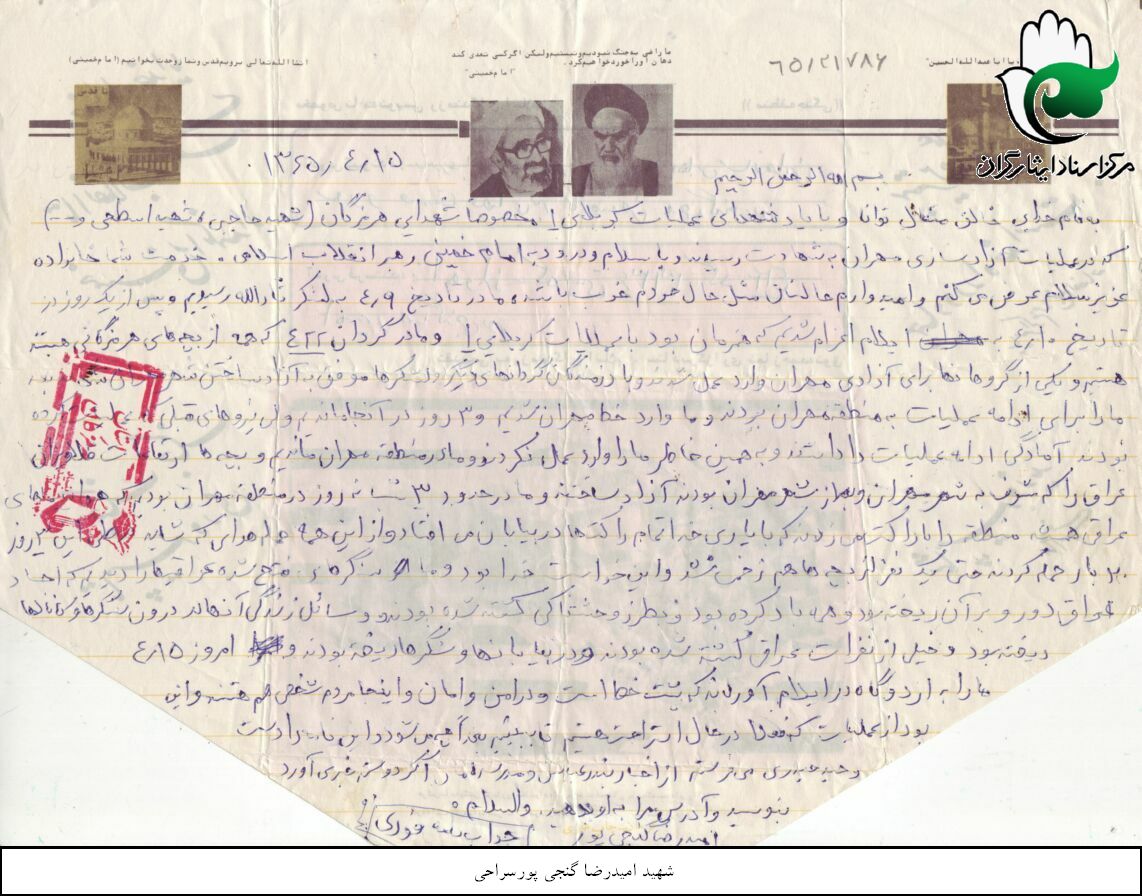 ما راضی به جنگ نبودیم و نیستیم ولیکن اگر کسی تعدی کند
دهان او را خورد خواهیم کرد.
"امام خمینی"
انشاءالله تعالی برویم قدس و نماز وحدت بخوانیم (امام خمینی)
یا اباعبدالله الحسین
یا قدس
مرکز اسناد ایثارگران
بسم الله الرحمن الرحیم
۱۳۶۵/۴/۱۵
به نام خدای خالق توانا و با یاد شهدای عملیات کربلای ۱ مخصوصاً شهدای هرمزگان (شهید حاجبی، شهید
که در عملیات آزادسازی مهران به شهادت رسیدند و با سلام و درود به امام خمینی رهبر انقلاب اسلامی. خدمت شما خانواده
عزیز سلام عرض می کنم و امیدوارم حالتان مثل حال خودم خوب باشد، ما در تاریخ ۴/۹ به لشکر ثارالله رسیدیم و پس از یک روز در
تاریخ ۴/۱۰ به ایلام اعزام شدیم که همزمان بود با عملیات کربلای ۱ و ما در گردان ۴۲۲ که از بچه های هرمزگانی هستند
هستیم و یکی از گروهانها برای آزادی مهران وارد عمل شدند و با رزمندگان گردانهای دیگر و لشکرها موفق به آزاد ساختن شهر مهران
ما را برای ادامه عملیات به منطقه مهران بردند و ما وارد خط مهران شدیم و ۳ روز در آنجا ماندیم ولی نیروهای قبلی که عملیات کرده
بودند آمادگی ادامه عملیات را داشتند و به همین خاطر ما را وارد عمل نکردند و ما در منطقه مهران ماندیم و بچه ها ارتفاعات
عراق را که مشرف به شهر مهران و شهر مهران بودند آزاد ساختند و ما در حدود ۳ شبانه روز در منطقه مهران بودیم که
عراق همیشه منطقه را با راکت می زدند که با یاری خدا تمام راکتها در بیابان می افتاد و از این همه حمله هوایی که شاید این ۳ روز
۲۰ بار حمله کردند حتی یک نفر از بچه ها هم زخمی نشد و این خواست خدا بود و ما سنگرهای فتح شده عراقیها را دیدیم که اجساد
عراقی دور و بر آن ریخته بود و همه باد کرده بود و بطرز وحشتناکی کشته شده بودند و وسائل زندگی آنها در درون سنگرها
ریخته بود و خیلی از نفرات عراقی کشته شده بودند و در بیابانها و سنگرها ریخته بودند و امروز ۴/۱۵
ما را به اردوگاه در ایلام آوردند که پشت خط است و در امن و امان و اینجا مردم شخصی هم هستند و این
بود از عملیات که فعلا در حال استراحت هستیم تا ببینیم بعداً چه می شود و این نامه را دست
وحید حیدری می فرستم. از اخبار بندرعباس و مدرسه
بنویسید و آدرس مرا به او بدهید. والسلام
امیدرضا گنجی پور
جواب نامه فوری
شهید امیدرضا گنجی پورسراحی